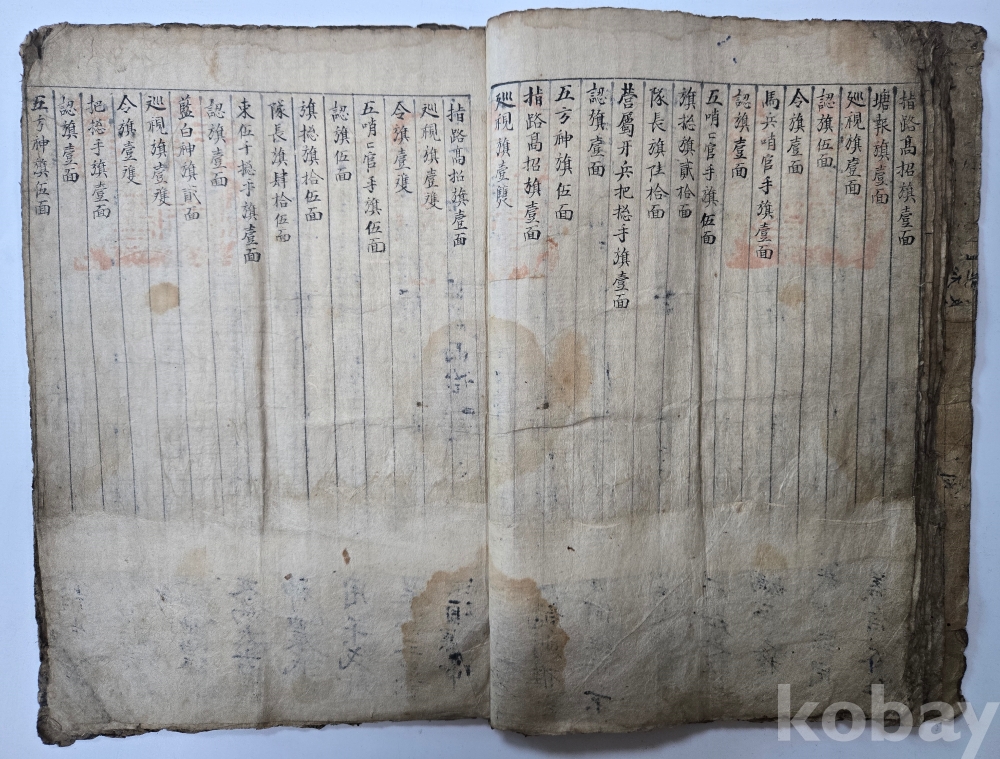 指路高招旗壹面
塘報旗壹面
廵視旗壹面
認旗伍面
令旗壹面
馬兵哨官手旗壹面
認旗壹面
五哨〻官手旗伍面
旗揔旗貳拾面
隊長旗陸拾面
營屬牙兵把揔手旗壹面
認旗壹面
五方神旗伍面
指路高招旗壹面
廵視旗壹䨇
指路高招旗壹面
廵視旗壹䨇
令旗壹䨇
五哨〻官手旗伍面
認旗伍面
旗揔旗拾伍面
隊長旗肆拾伍面
束伍千揔手旗壹面
認旗壹面
藍白神旗貳面
廵視旗壹䨇
令旗壹䨇
把揔手旗壹面
認旗壹面
五方神旗伍面
kobay